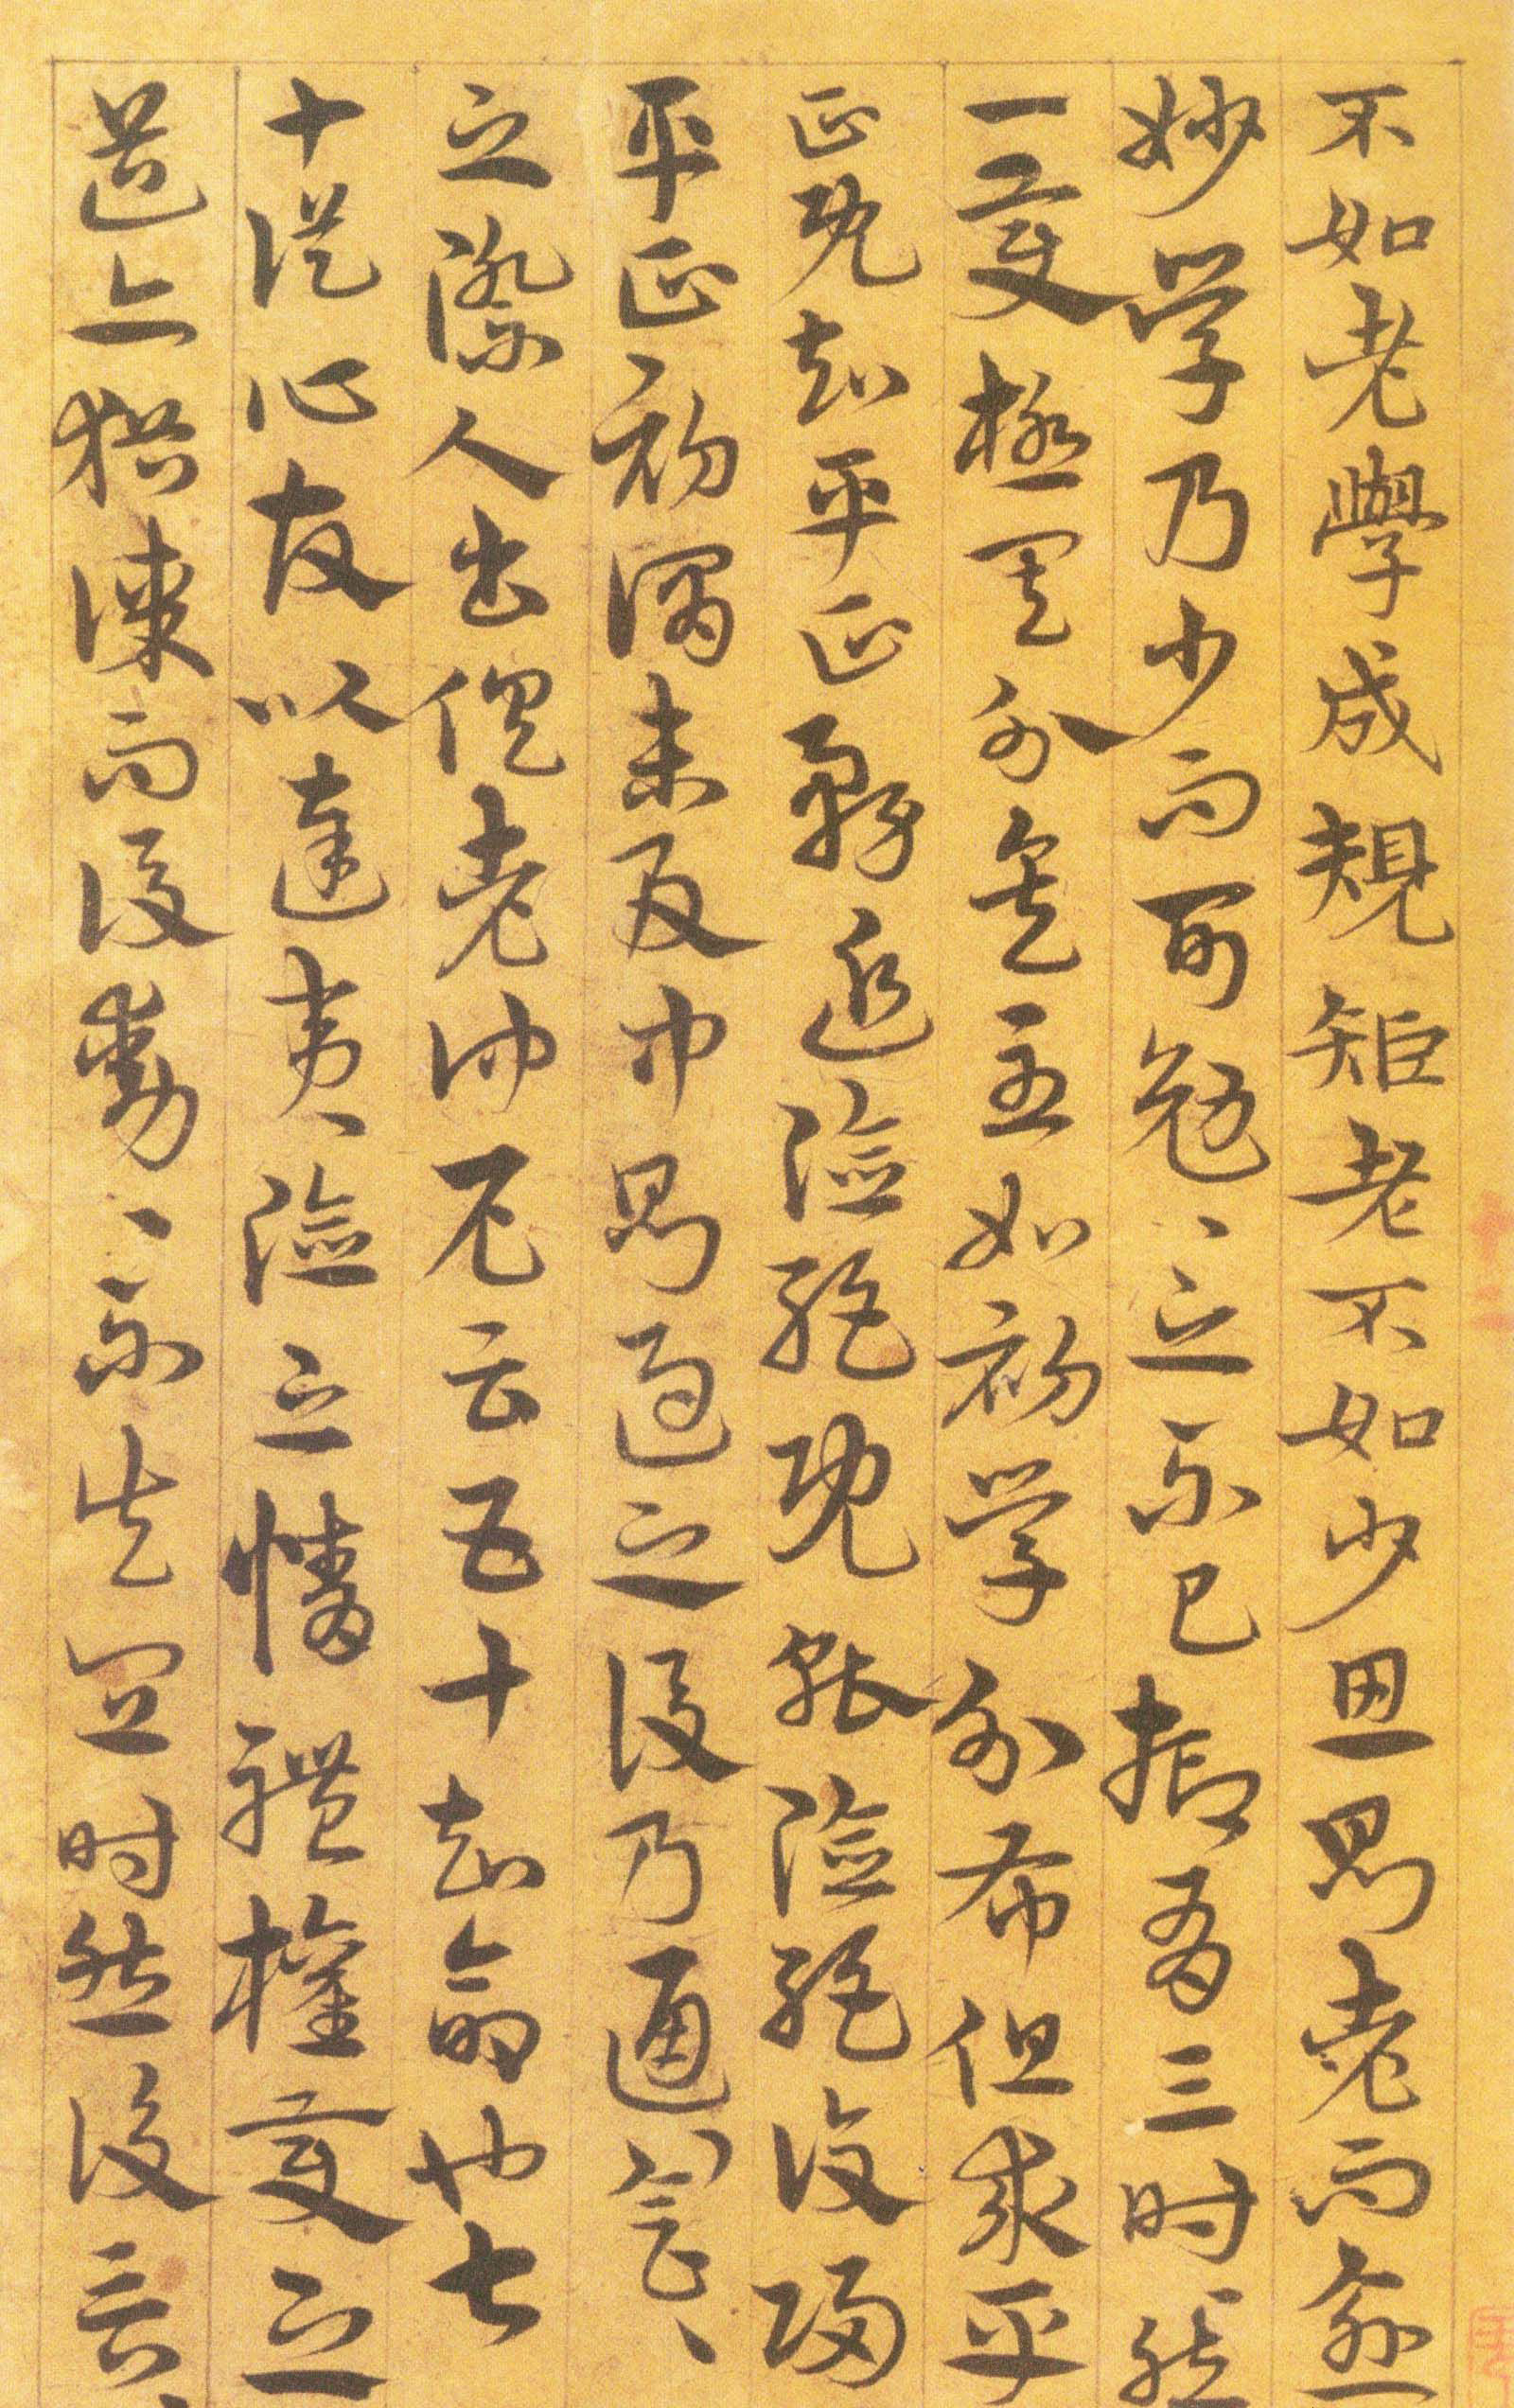 不如老學成規矩老不如少思思則老而逾
妙學乃少而可勉〻之不已抑有三時然
一變極其分矣至如初學分布但求平
正既知平正務追險絕既能險絕復歸
平正初謂未及中則過之後乃通〻會〻
之際人書俱老仲尼云五十知命也七
十從心故以達夷險之情體權變之
道亦猶謀而後動〻不失宜時然後言〻